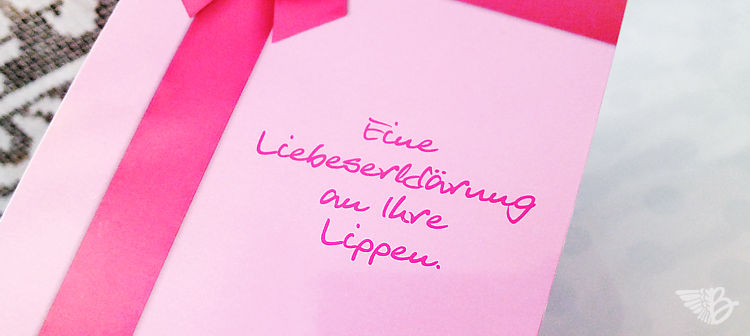 Eine
Liebeserklärung
an Ihre
Lippen.
B